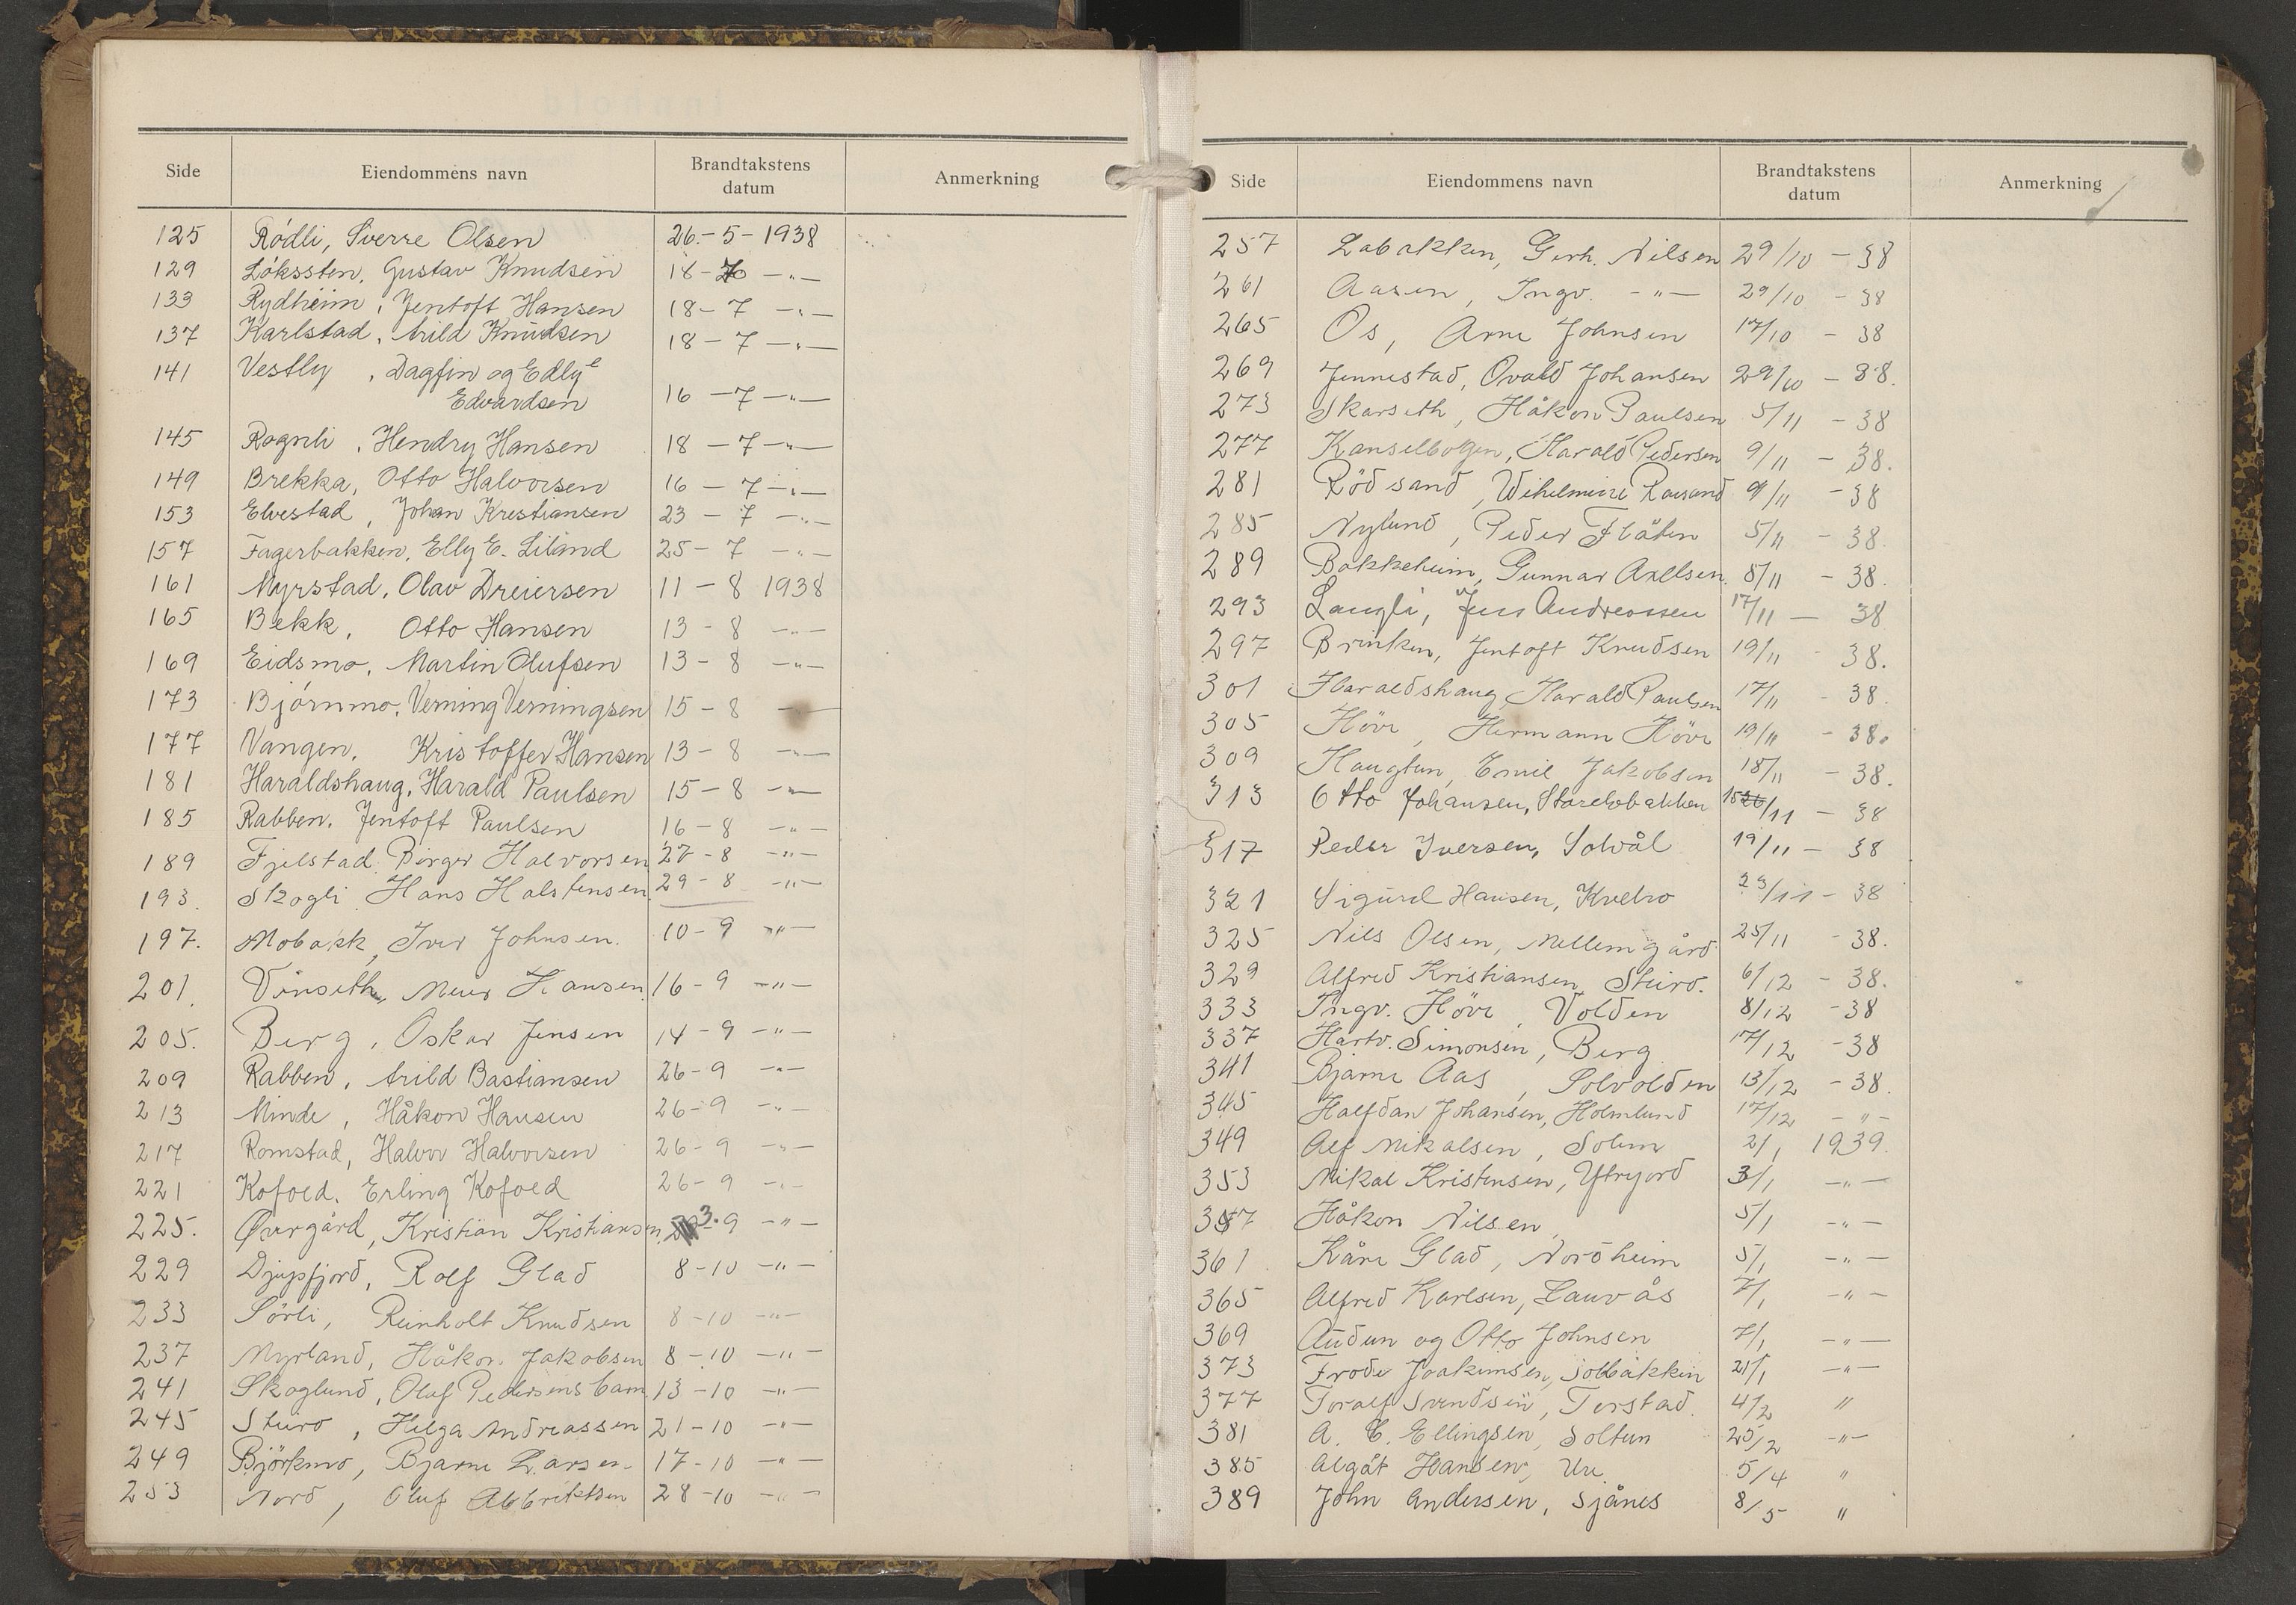 Side Eiendommens navn Brandtakstens datum Anmerkning
125 Rödli, Sverre Olsen 26.-5-1938
129 Lökssten, Gustav Knudsen 18- -"-
133 Rydheim, Jentoft Hansen 18-7 -"-
137 Karlstad, Arild Knudsen 18-7 -"-
141 Vestly, Dagfin og Edly
Edvardsen 16-7 -"-
145 Rognli, Hendry Hansen 18-7 -"-
149 Brekka, Otto Halvorsen 16-7 -"-
153 Elvestad, Johan Kristiansen 23-7 -"-
157 Fagerbakken, Elly E. Liland 25-7 -"-
161 Myrstad, Olav Dreiersen 11-8 1938
165 Bekk, Otto Hansen 13-8 -"-
169 Eidsmo, Martin Olufsen 13-8 -"-
173 Björnmo, Verning Verningsen 15-8
177 Vangen, Kristoffer Hansen 13-8 -"-
181 Haraldshaug, Harald Paulsen 15-8 -"-
185 Rabben, Jentoft Paulsen 16-8 -"-
189 Fjelstad, Birger Halvorsen 27-8 -"-
193. Skogli, Hans Halstensen 29-8 -"-
197. Mobakk, Iver Johnsen. 10-9 -"-
201. Hansen 16-9 -"-
205. Berg, Oskar Jensen 14-9 -"-
209 Rabben, Arild Bastiansen 26-9 -"-
213 Minde, Håkon Hansen 26-9 -"-
217 Romstad, Halvor Halvorsen 26-9 -"-
221 Kofoed, Erling Kofoed 26-9 -"-
225. Øvrgård, Kristian Kristiansen 3.-9 -"-
229 Djupfjord, Rolf Glad 8-10 -"-
233 Sörli, Reinholt Knudsen 8-10 -"-
237 Myrland, Håkon Jakobsen 8-10 -"-
241 Skoglund, Olaf Pedersens barn 13-10 -"-
245 Steiro, Helga Andreassen 21-10 -"-
249 Björkmo, Bjarne Larsen 17-10 -"-
253 Nord, Oluf Albriktsen 28-10 -"-
Side Eiendommens navn Brandtakstens datum Anmerkning
257 Labakken, Gerh. Nilsen 29/10 - 38
261 Aasen, Ingv. -"- 29/10 - 38
265 Os, Arne Johnsen 17/10 - 38
269 Jennestad, Ovald Johansen 29/10 - 38.
273 Skarseth, Håkon Paulsen 5/11 - 38
277 Kanselbogen, Harald Pedersen 9/11 - 38.
281 Rödsand, 9/11 - 38
285 Nylund, Peder Flåten 5/11 - 38.
289 Bakkeheim, Gunnar Axelsen. 8/11 - 38.
293 Langli, Jens Andreassen 17/11 - 38
297 Brinken, Jentoft Knudsen 19/11 - 38.
301 Haraldshaug, Harald Paulsen 17/11 - 38.
305 Höve, Hermann Höve 19/11 - 38.
309 Haugtun, Emil Jakobsen 18/11 - 38.
313 Otto Johansen, 15/11 - 38
317 Peder Iversen, Solvål 19/11 - 38
321 Sigurd Hansen, Kvebro 23/11 - 38
325 Nils Olsen, Mellemgård 25/11 - 38.
329 Alfred Kristiansen, Steiro. 6/12 - 38.
333 Ingv. Höve, Volden 8/12 - 38
337 Hartv. Simonsen, Berg 17/12 - 38
341 Bjarne Aas, Solvolden 13/12 - 38.
345 Halfdan Johansen, Holmlund 17/12 -"-
349 Alf Mikalsen, Solum 2/1 1939.
353 Mikal Kristensen, Ytrejord 3/1 -"-
357 Håkon Nilsen 5/1 -"-
361 Kåre Glad, Nordheim 5/1 -"-
365 Alfred Karlsen, Lauvås 7/1 -"-
369 Audun og Otto Johnsen 7/1 -"-
373 Frode Joakimsen, Solbakken 21/1 -"-
377 Toralf Svendsen, Torstad. 4/2 "
381 A. C. Ellingsen, Soltun 25/2 -"-
385 Algåt Hansen, Ure. 5/4 "
389 John Andersen, Sjånes 8/5 "